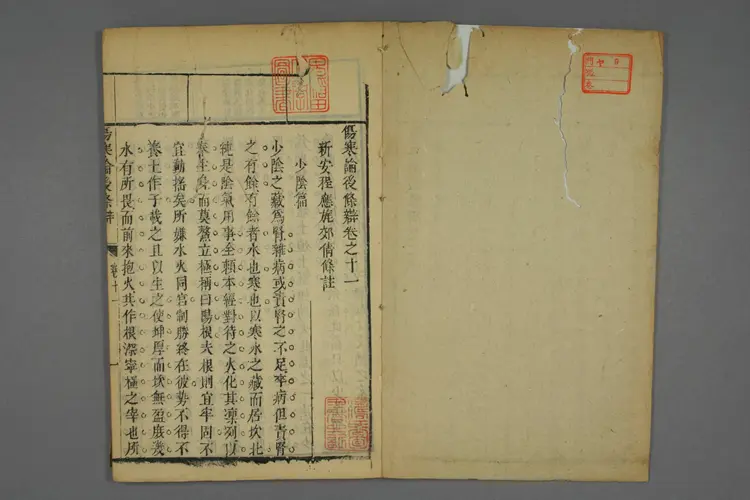 傷寒論後條辯卷之十一
新安程應旄郊倩條註
少陰篇
少陰之藏爲腎雜病或責腎之不足卒病但責腎
之有餘有餘者水也寒也以寒水之藏而居坎北
純是陰氣用事全賴本經對待之火化其凜冽以
養生身而莫鰲立極柄曰陽根夫根則宜牢固不
宜動搖矣所嫌水火同宮制勝終在彼勢不得不
藉土作于載之且以生之使坤厚而坎無盈庶幾
水有所畏而前來抱火其作根深寧極之宰也所
傷寒論後條辯 卷十一 一